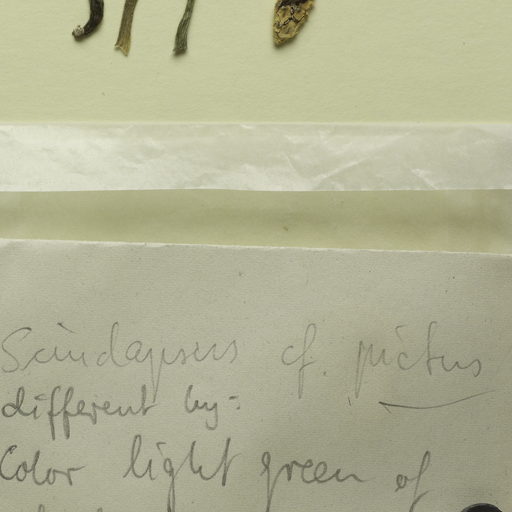 Scindapsus cf. pictus
different by:
Color light green of